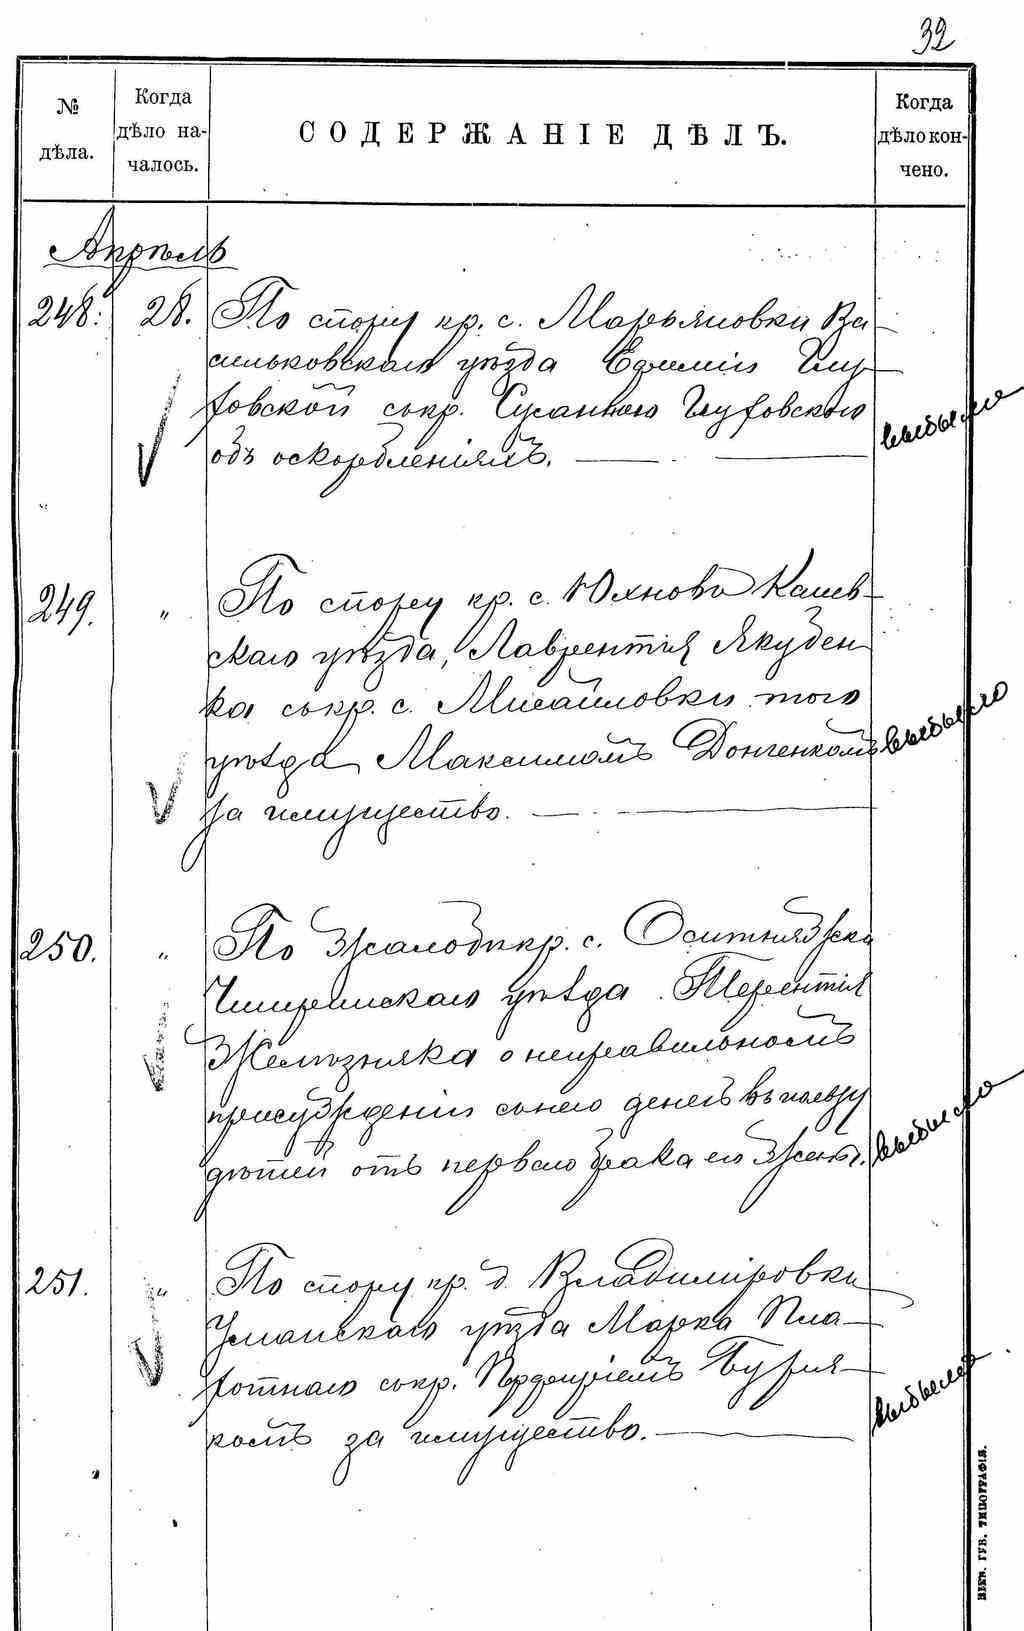 32
№ дѣла.
Когда дѣло началось.
СОДЕРЖАНІЕ ДѢЛЪ.
Когда дѣло кончено.
Апрѣль
248. 28. По спору кр. с. Марьяновки Ва
сильковскаго уѣзда Ефиміи
ковской съ кр.
объ оскорбленіяхъ.
выбыло
249. " По спору кр. с. Юхнова Канев-
скаго уѣзда, Лаврентія Якубен
ка съ кр. с. Михайловки того
уѣзда Максимомъ
за имущество.
выбыло
250. " По жалобѣ кр. с. Оситняжки
Чигиринскаго уѣзда Терентія
Желѣзняка о неправильномъ
присужденіи съ него денегъ въ пользу
дѣтей отъ перваго брака его жены.
выбыло
251. " По спору кр. д. Владиміровки
Уманскаго уѣзда Марка Пла-
хотнаго съ кр. Порфиріемъ Буря-
комъ за имущество.
выбыло
КІЕВ. ГУБ. ТИПОГРАФІЯ.